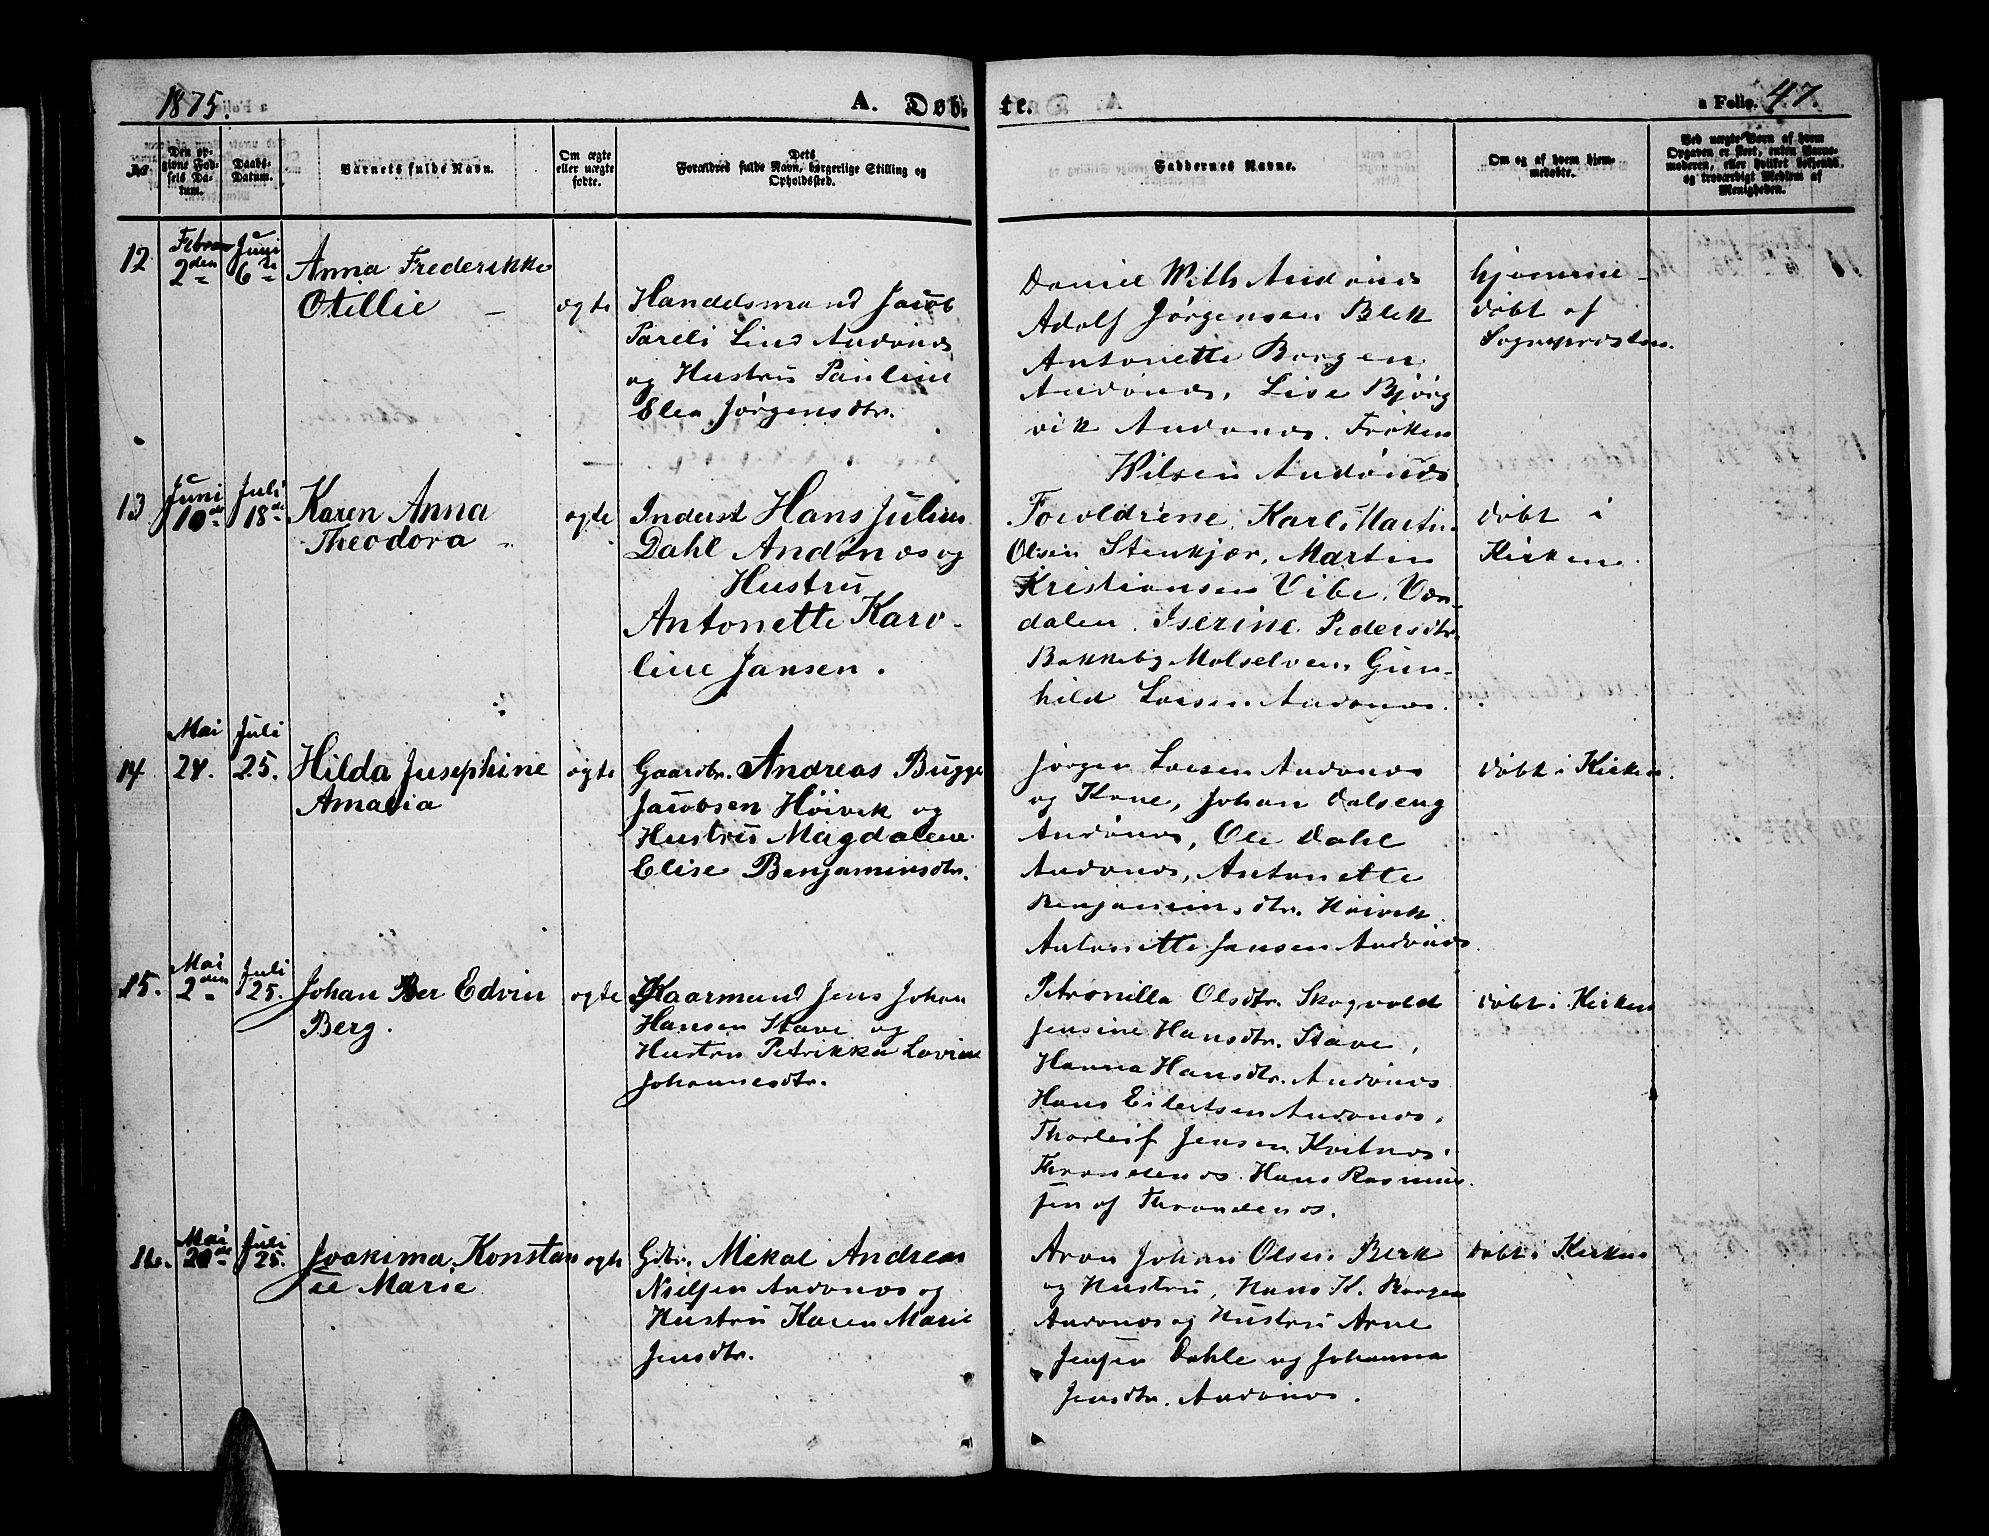 1875.
A. Døb-
te.
a Folio. 47.
No
Den op-
givne Fød-
sels Da-
tum.
Daabs-
Datum.
Barnets fulde Navn.
Om ægte
eller uægte
fødte.
Dets
Forældres fulde Navn, borgerlige Stilling og
Opholdssted.
Faddernes Navne.
Om og af hvem hjem-
medøbte.
Ved uægte Børn af hvem
Opgaven er skeet, enten Barne-
moderen, eller hvilket bekjendt
og troværdigt Medlem af
Menigheden.
12
Februar
2den
Juni
6te
Anna Frederikke
Otellie
ægte
Handelsmand Jacob
Pareli Lind Andønæs
og Hustru Pauline
Elen Jørgensdtr.
Daniel With Andønæs
Adolf Jørgensen Blek
Antonette Borgen
Andønæs, Lise Bjørg
vik Andønæs. Frøken
Wilsen Andønæs
hjemme-
døbt af
Sognepresten.
13
Juni
10de
Juli
18de
Karen Anna
Theodora
ægte
Inderst Hans Julius
Dahl Andønæs og
Hustru
Antonette Karo-
line Jansen.
Forældrene, Karl Martin
Olsen Stenkjær, Martin
Kristiansen Vibe, Vær-
dalen. Iserine Pedersdtr.
Bakkeby Målselven, Gun-
hild Larsen Andønæs.
døbt i
Kirken.
14
Mai
24.
Juli
25.
Hilda Jusephine
Amalia
ægte
Gaardbr. Andreas Bugge
Jacobsen Høivik og
Hustru Magdalene
Elise Benjaminsdtr.
Jørgen Larsen Andønæs
og Kone, Johan Dalseng
Andønæs, Ole Dahl
Andønæs, Antonette
Benjaminsdtr. Høivik
Antonette Jansen Andønæs.
døbt i Kirken.
15.
Mai
2den
Juli
25.
Johan Ber Edvin
Berg.
ægte
Kaarmand Jens Johan
Hansen Stave og
Hustru Petrikka Lovine
Johannesdtr.
Petronilla Olsdtr. Skogvold
Jensine Hansdtr. Stave,
Hanna Hansdtr. Andønæs
Hans Eilertsen Andønæs,
Thorleif Jensen Kvitnæs,
Throndenæs. Hans Rasmus-
sen af Throndenæs.
døbt i Kirken
16.
Mai
20de
Juli
25.
Joakima Konstan
se Marie
ægte
Gdbr. Mekal Andreas
Nielsen Andønæs og
Hustru Karen Marie
Jensdtr.
Aron Johan Olsen Berk
og Hustru, Hans K. Borgen
Andønæs og Hustru Arne
Jensen Dahle og Johanna
Jensdtr. Andønæs.
døbt i Kirken